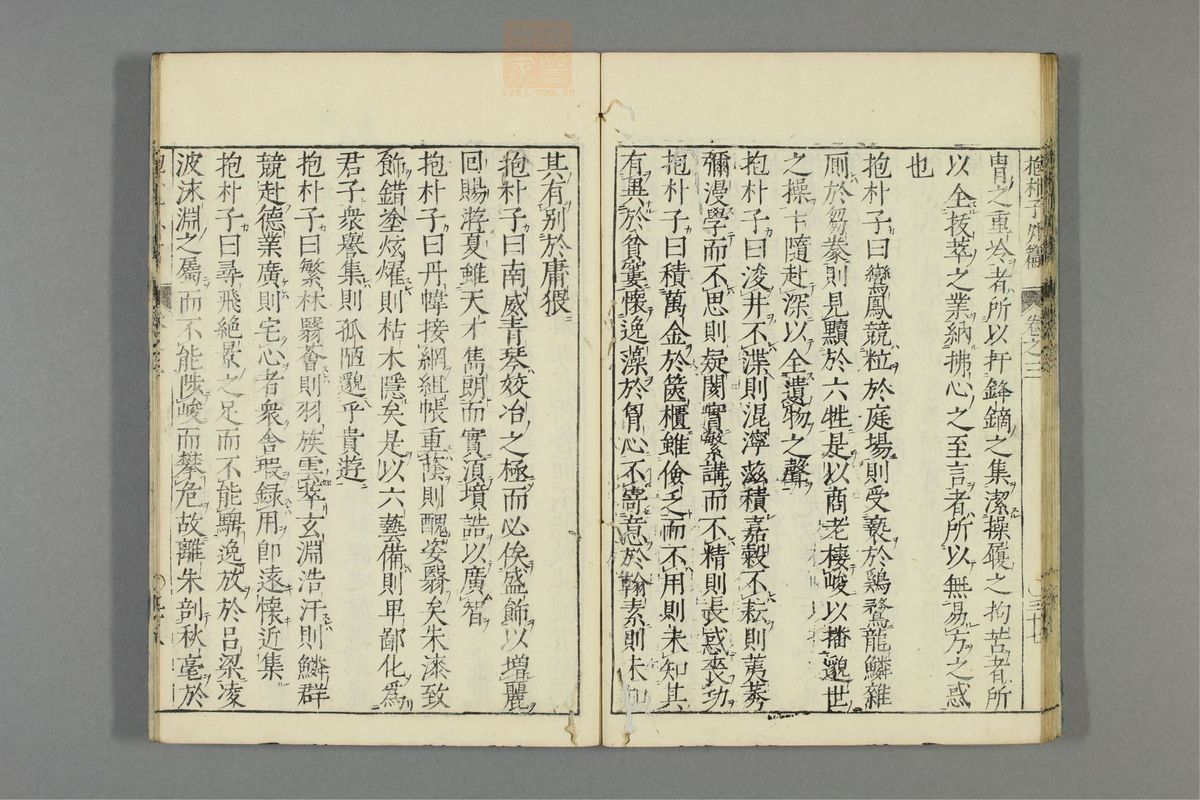 抱朴子外篇 卷之三
胄之重冷者所以扞鋒鏑之集潔操履之拘苦者所
以全拔萃之業納拂心之至言者所以無易方之惑
也
抱朴子曰鸞鳳競粒於庭場則受褻於鷄鶩龍鱗雜
厠於芻豢則見黷於六牲是以商老棲峻以播邈世
之操卞隨赴深以全遺物之聲
抱朴子曰浚井不渫則混濘滋積嘉穀不耘則荑莠
彌漫學而不思則疑閡實繁講而不精則長惑喪功
抱朴子曰積萬金於篋櫃雖儉乏而不用則未知其
有異於貧窶懷逸藻於胷心不寄意於翰素則未知
其有别於庸猥
抱朴子曰南威青琴姣冶之極而必俟盛飾以增麗
回賜游夏雖天才儁朗而實須墳誥以廣智
抱朴子曰丹幃接網組帳重蔭則醜姿翳矣朱漆致
飾錯塗炫燿則枯木隱矣是以六藝備則卑鄙化爲
君子衆譽集則孤陋邈乎貴遊
抱朴子曰繁林翳薈則羽族雲萃玄淵浩汗則鱗群
競赴德業廣則宅心者衆舍瑕録用卽遠懷近集
抱朴子曰尋飛絶景之足而不能騁逸放於呂梁凌
波泳淵之屬而不能陟峻而攀危故離朱剖秋毫於